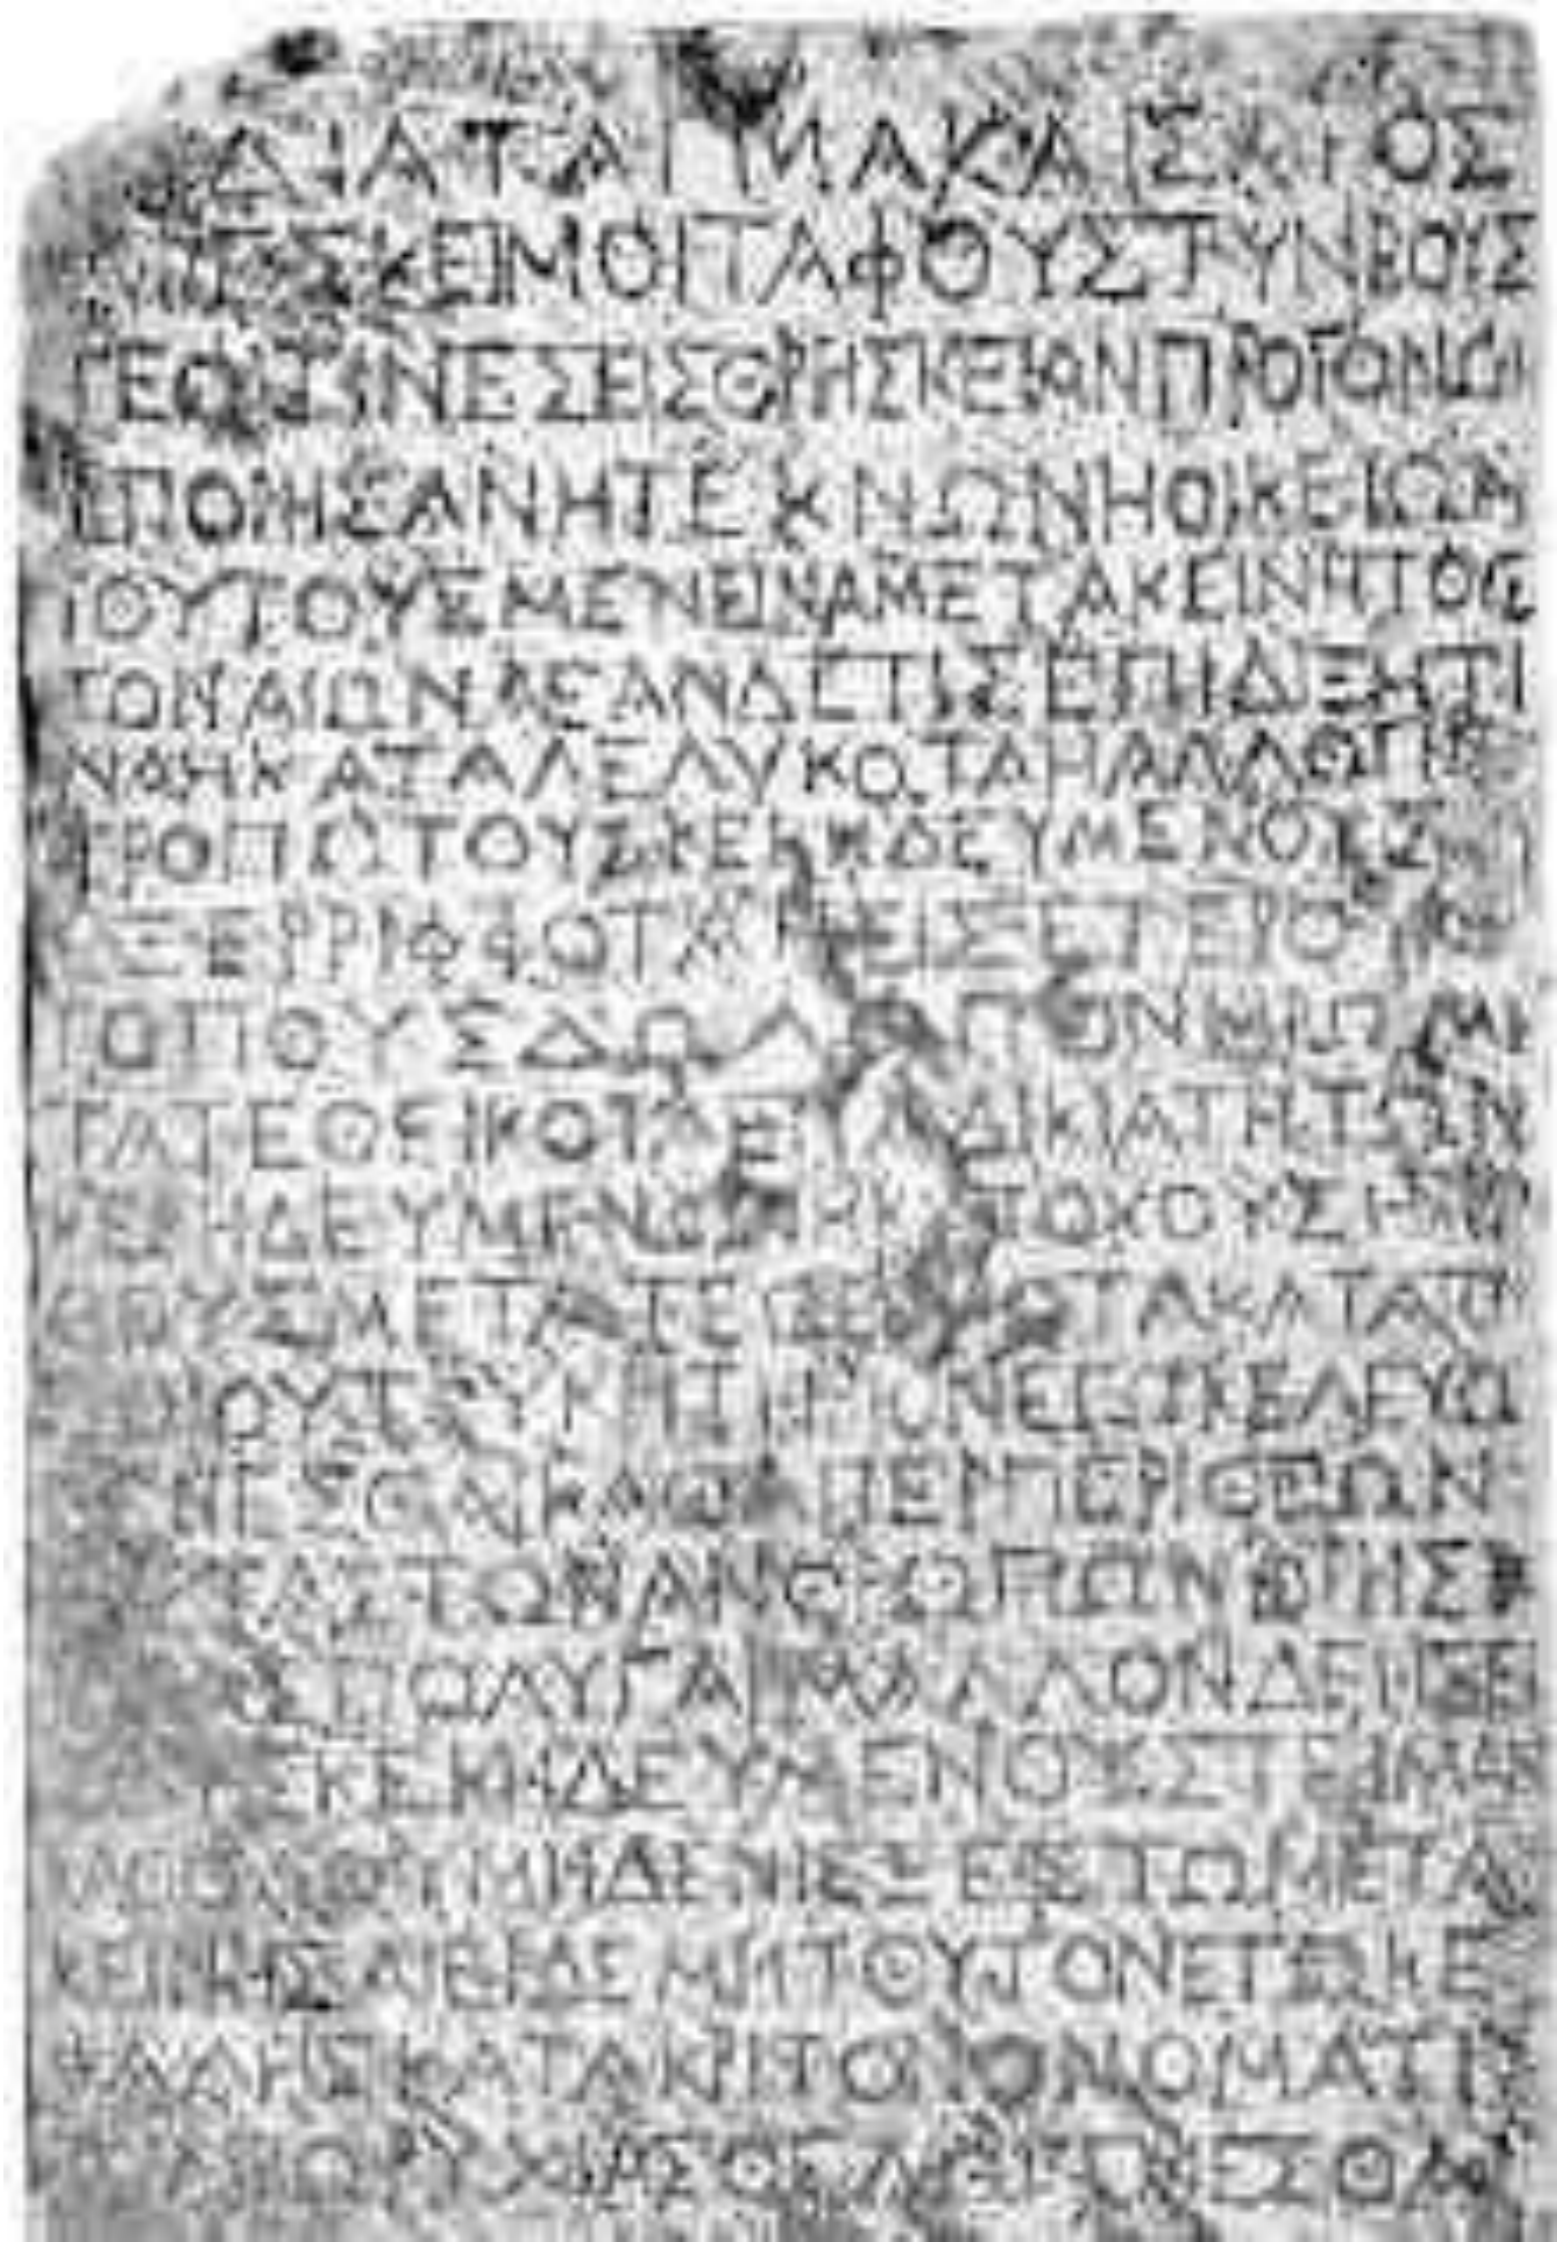 ΔΙΑΤΑΓΜΑΚΑΙΣΑΡΟΣ
ΑΡΕΣΚΕΙΜΟΙΤΑΦΟΥΣΤΥΝΒΟΥΣ
ΤΕΟΙΤΙΝΕΣΕΙΣΘΡΗΣΚΕΙΑΝΠΡΟΓΟΝΩΝ
ΕΠΟΙΗΣΑΝΗΤΕΚΝΩΝΗΟΙΚΕΙΩΝ
ΤΟΥΤΟΥΣΜΕΝΕΙΝΑΜΕΤΑΚΕΙΝΗΤΟΥΣ
ΤΟΝΑΙΩΝΑΕΑΝΔΕΤΙΣΕΠΙΔΙΞΗΤΙ
ΝΑΗΚΑΤΑΛΕΛΥΚΟΤΑΗΑΛΛΩΤΙΝΙ
ΤΡΟΠΩΤΟΥΣΚΕΚΗΔΕΥΜΕΝΟΥΣ
ΕΞΕΡΡΙΦΦΟΤΑΗΕΙΣΕΤΕΡΟΥΣ
ΤΟΠΟΥΣΔΩΛΩΠΟΝΗΡΩΜΕ
ΤΑΤΕΘΕΙΚΟΤΑΕΠΑΔΙΚΙΑΤΗΤΩΝ
ΚΕΚΗΔΕΥΜΕΝΩΝΗΚΑΤΟΧΟΥΣΗΛΙ
ΘΟΥΣΜΕΤΑΤΕΘΕΙΚΟΤΑΚΑΤΑΤΟΥ
ΤΟΙΟΥΤΟΥΚΡΙΤΗΡΙΟΝΕΓΩΚΕΛΕΥΩ
ΓΕΝΕΣΘΑΙΚΑΘΑΠΕΡΠΕΡΙΘΕΩΝ
ΕΙΣΤΑΣΤΩΝΑΝΘΡΩΠΩΝΘΡΗΣΚ
ΚΙΑΣΠΟΛΥΓΑΡΜΑΛΛΟΝΔΕΗΣΕΙ
ΤΟΥΣΚΕΚΗΔΕΥΜΕΝΟΥΣΤΕΙΜΑΝ
ΚΑΘΟΛΟΥΜΗΔΕΝΙΕΞΕΣΤΩΜΕΤΑ
ΚΕΙΝΗΣΑΙΕΙΔΕΜΗΤΟΥΤΟΝΕΓΩΚΕ
ΦΑΛΗΣΚΑΤΑΚΡΙΤΟΝΟΝΟΜΑΤΙ
ΤΥΜΒΩΡΥΧΙΑΣΘΕΛΩΓΕΝΕΣΘΑΙ